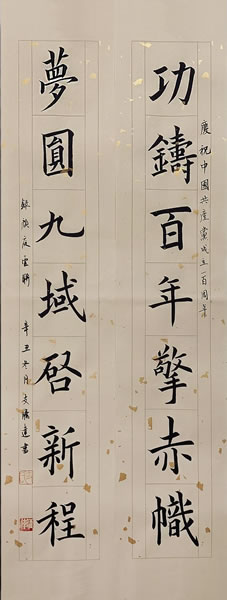 慶祝中國共產黨成立一百周年
功鑄百年擎赤幟
夢圓九域啓新程
辛丑冬月文勝進書